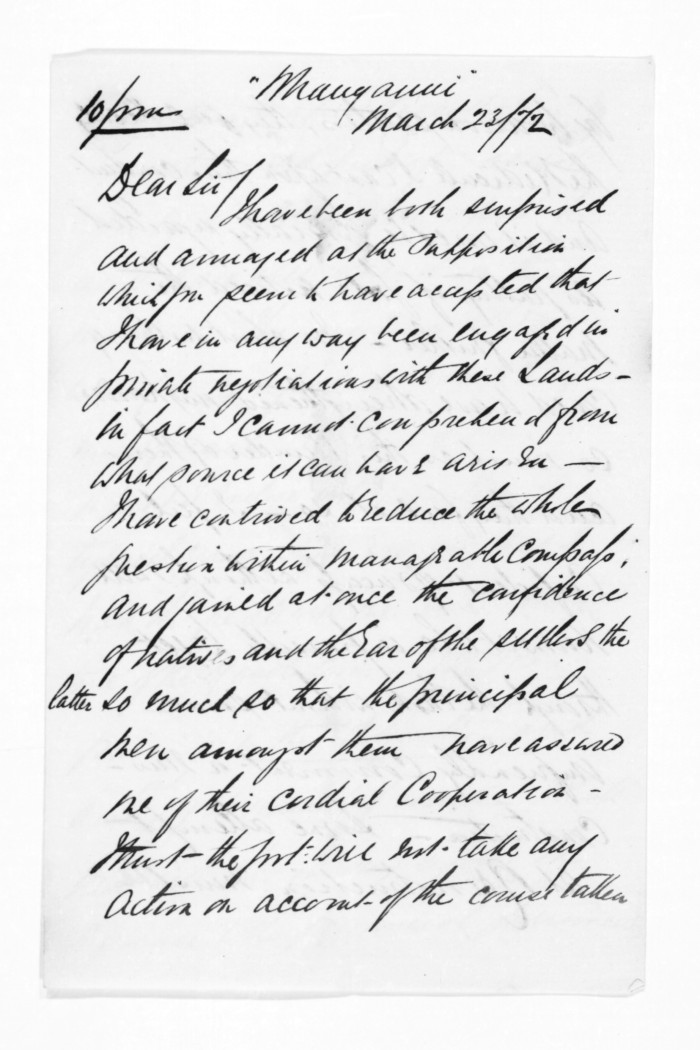 "Mauganui"
10/pm
March 23/72
Dear Sir/
I have been both surprised
and annoyed at the supposition
which you seem to have accepted that
I have in any way been engaged in
private negotiations with these Lands -
in fact I cannot comprehend from
what source it can have arisen —
I have contrived to reduce the whole
question within manageable compass;
and gained at once the confidence
of natives and the Ear of the settlers the
latter so much so that the principal
men amongst them have assured
me of their cordial Cooperation -
I trust the Govt: will not take any
action on account of the course taken